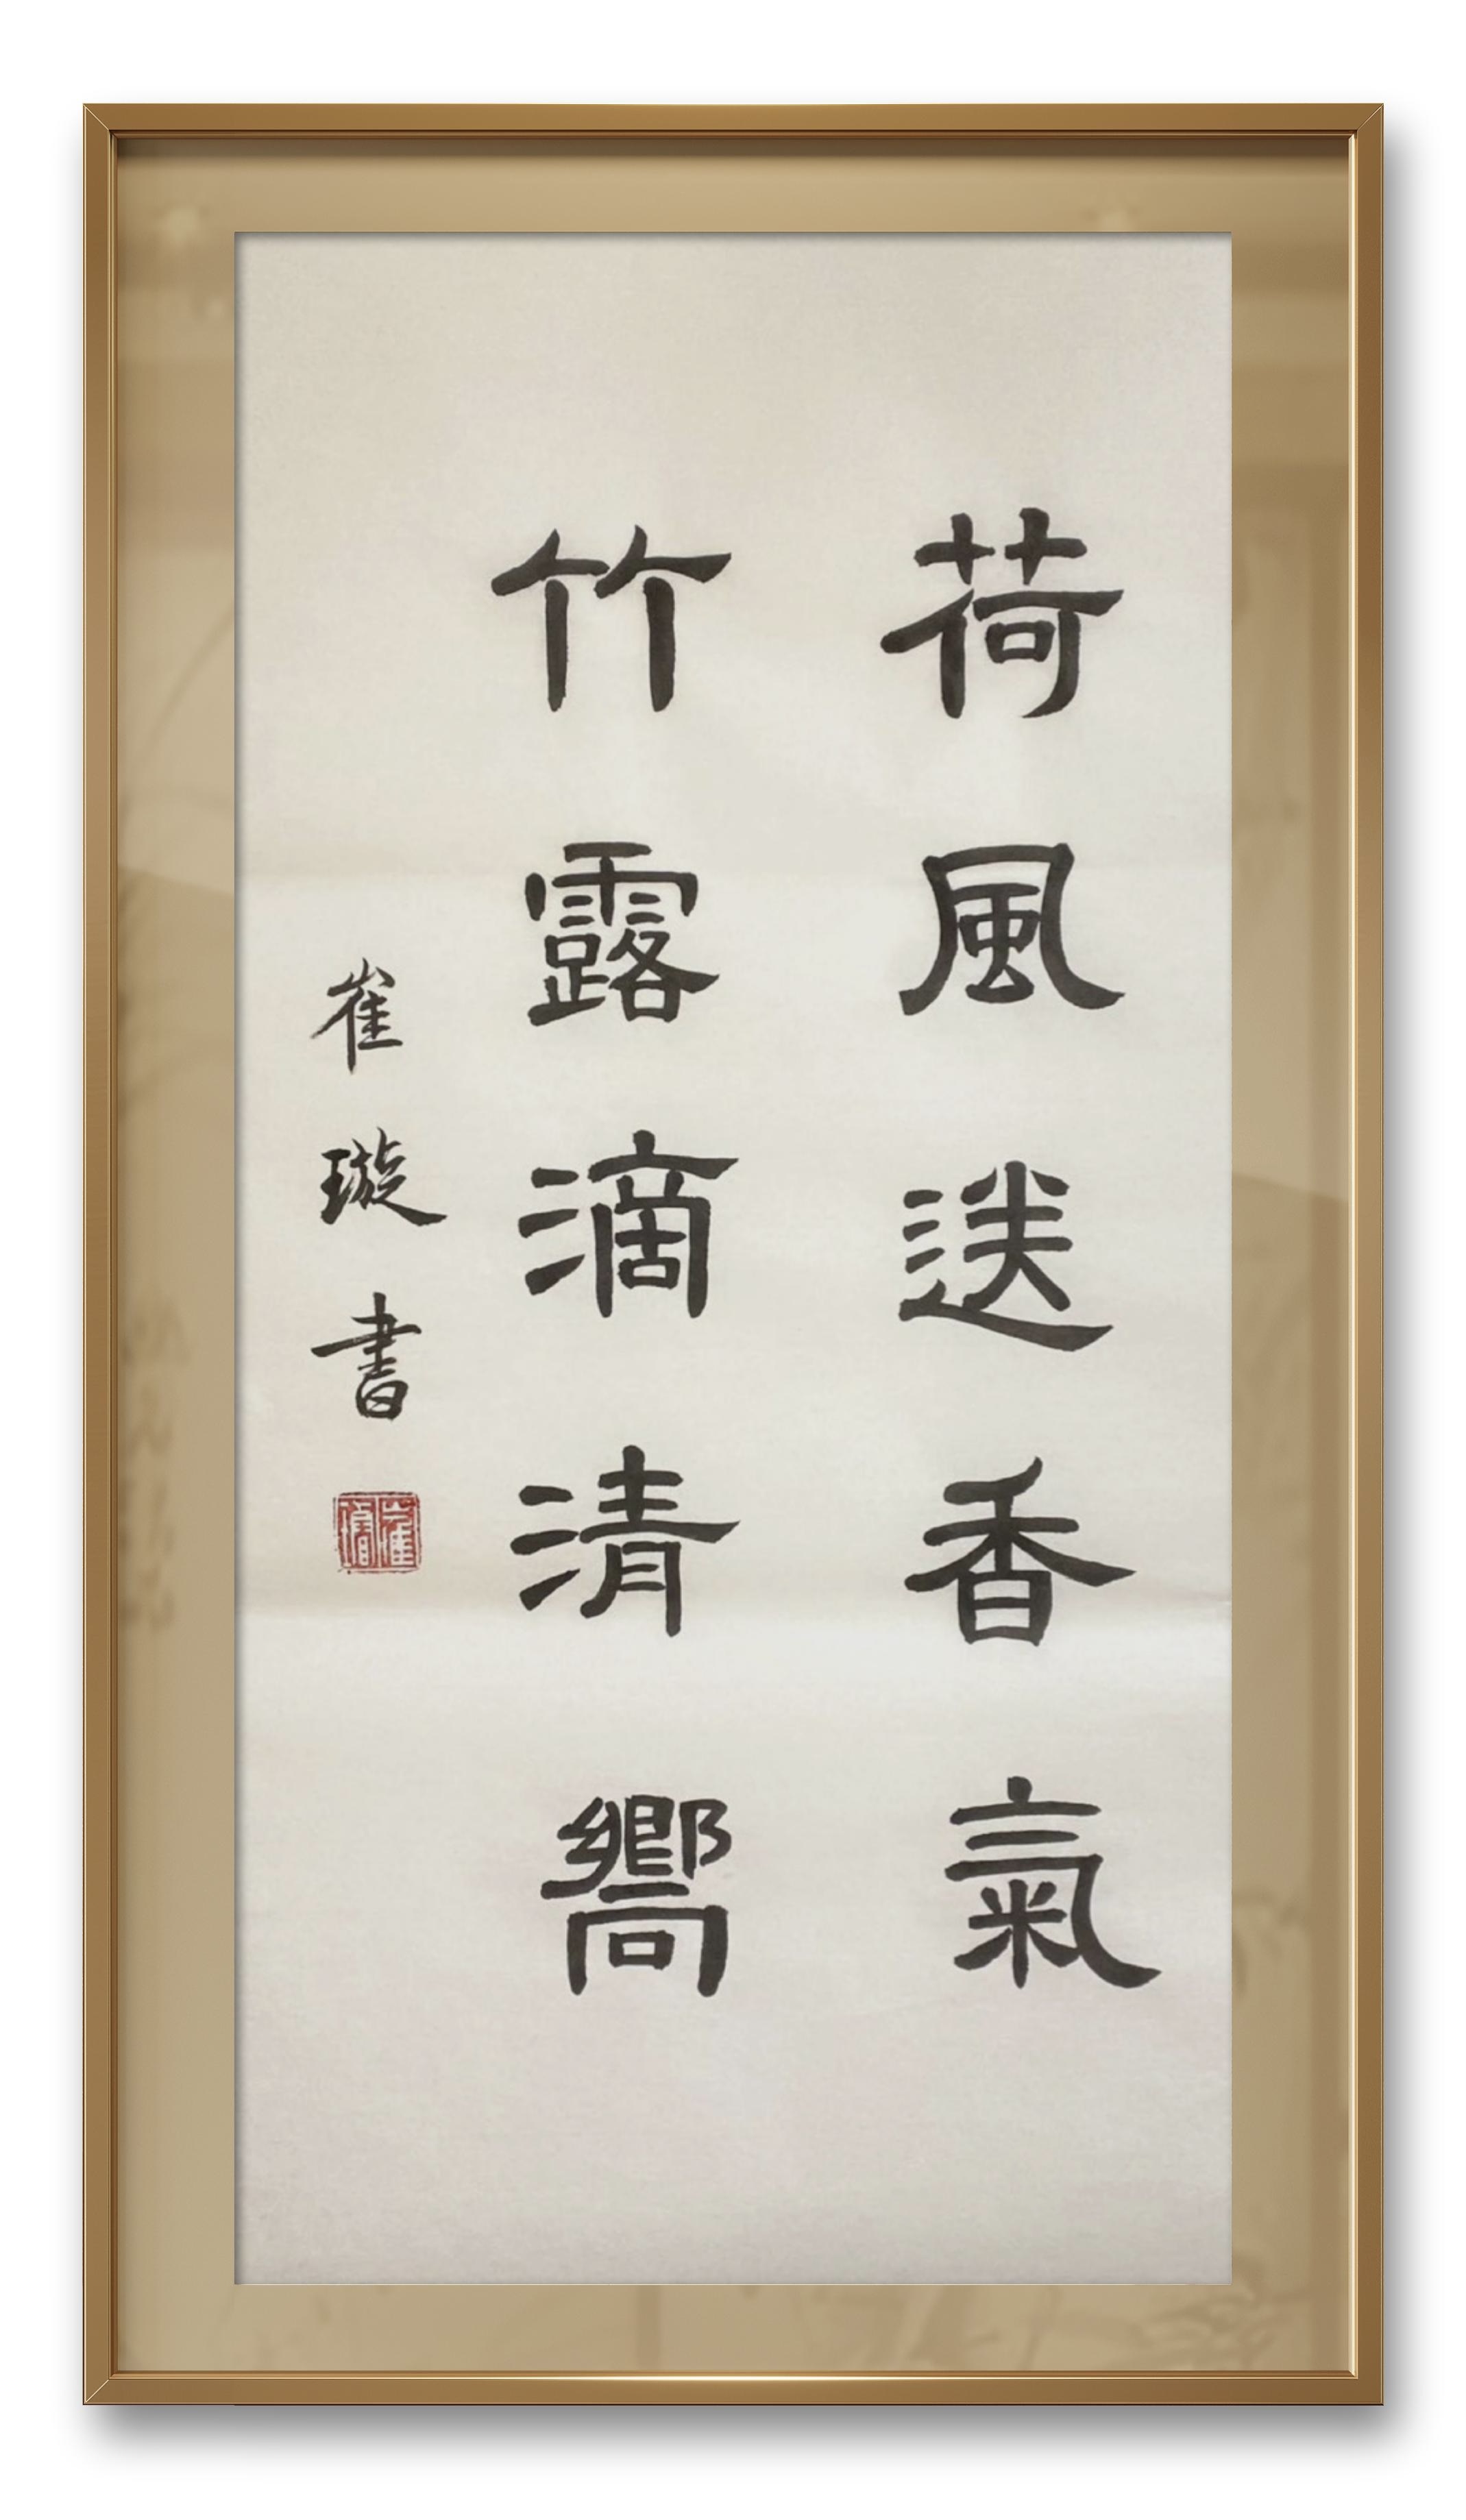 荷風送香氣
竹露滴清響
崔璇書